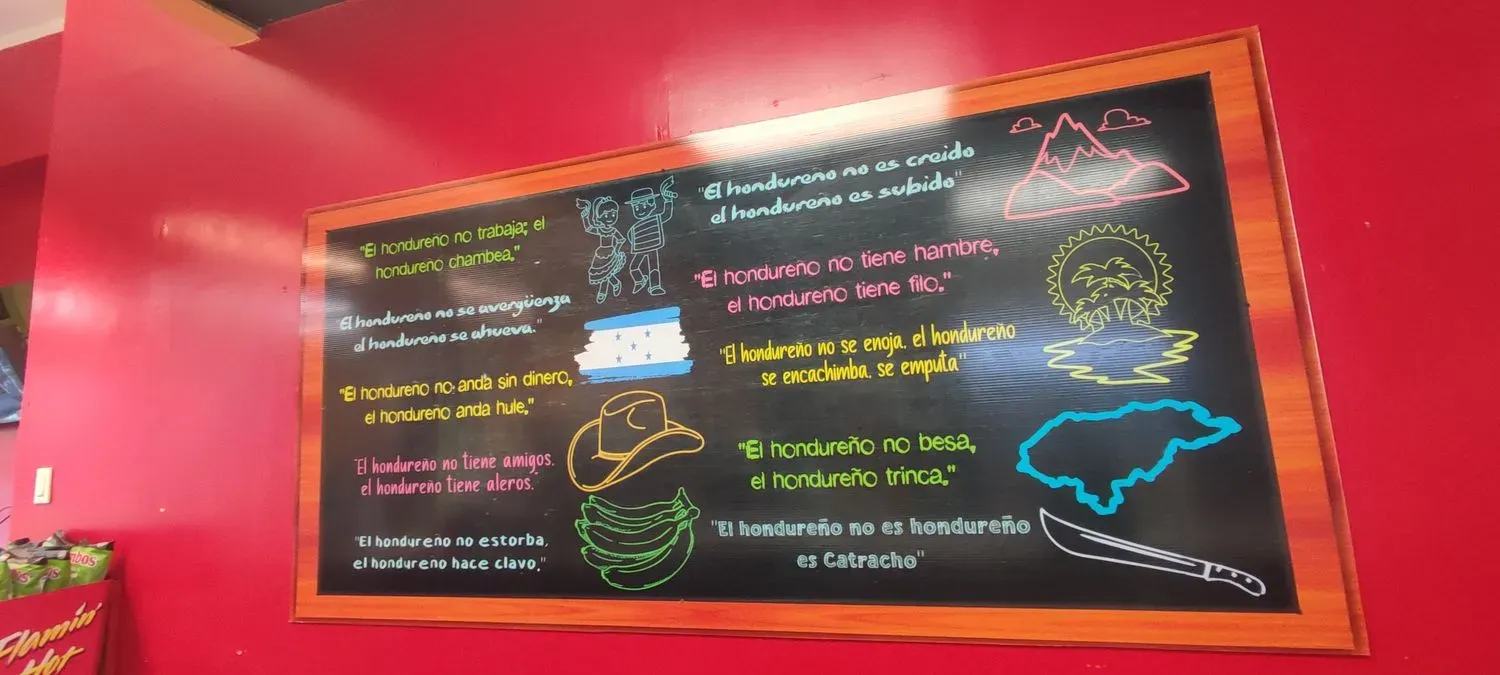 "El hondureño no trabaja; el
hondureño chambea."
"El hondureño no se avergüenza
el hondureño se ahueva."
"El hondureño no anda sin dinero,
el hondureño anda hule."
"El hondureño no tiene amigos.
el hondureño tiene aleros."
"El hondureño no estorba,
el hondureño hace clavo."
"El hondureño no es creido
el hondureño es subido"
"El hondureño no tiene hambre,
el hondureño tiene filo."
"El hondureño no se enoja. el hondureño
se encachimba. se emputa"
"El hondureño no besa,
el hondureño trinca."
"El hondureño no es hondureño
es Catracho"
Flamin'
Hot